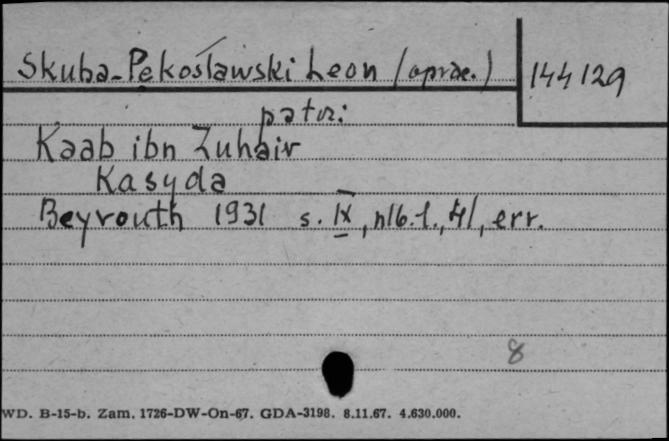 Skuba-Pękosławski Leon (oprac.)
144129
patrz:
Kaab ibn Zuhair
Kasyda
Beyrouth 1931 s. IX, nlb. 1., err.
8
WD. B-15-b. Zam. 1726-DW-On-67. GDA-3198. 8.11.67. 4.630.000.